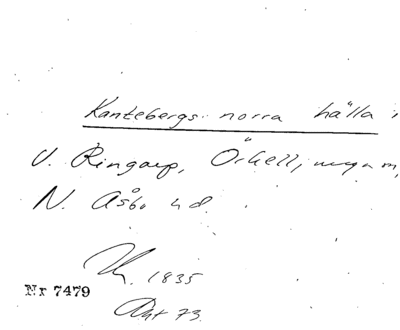 Kantebergs norra hälla i
V. Ringarp, Örkelljunga sn,
N. Åsbo hd.
1835
Nr 7479
Akt 73.